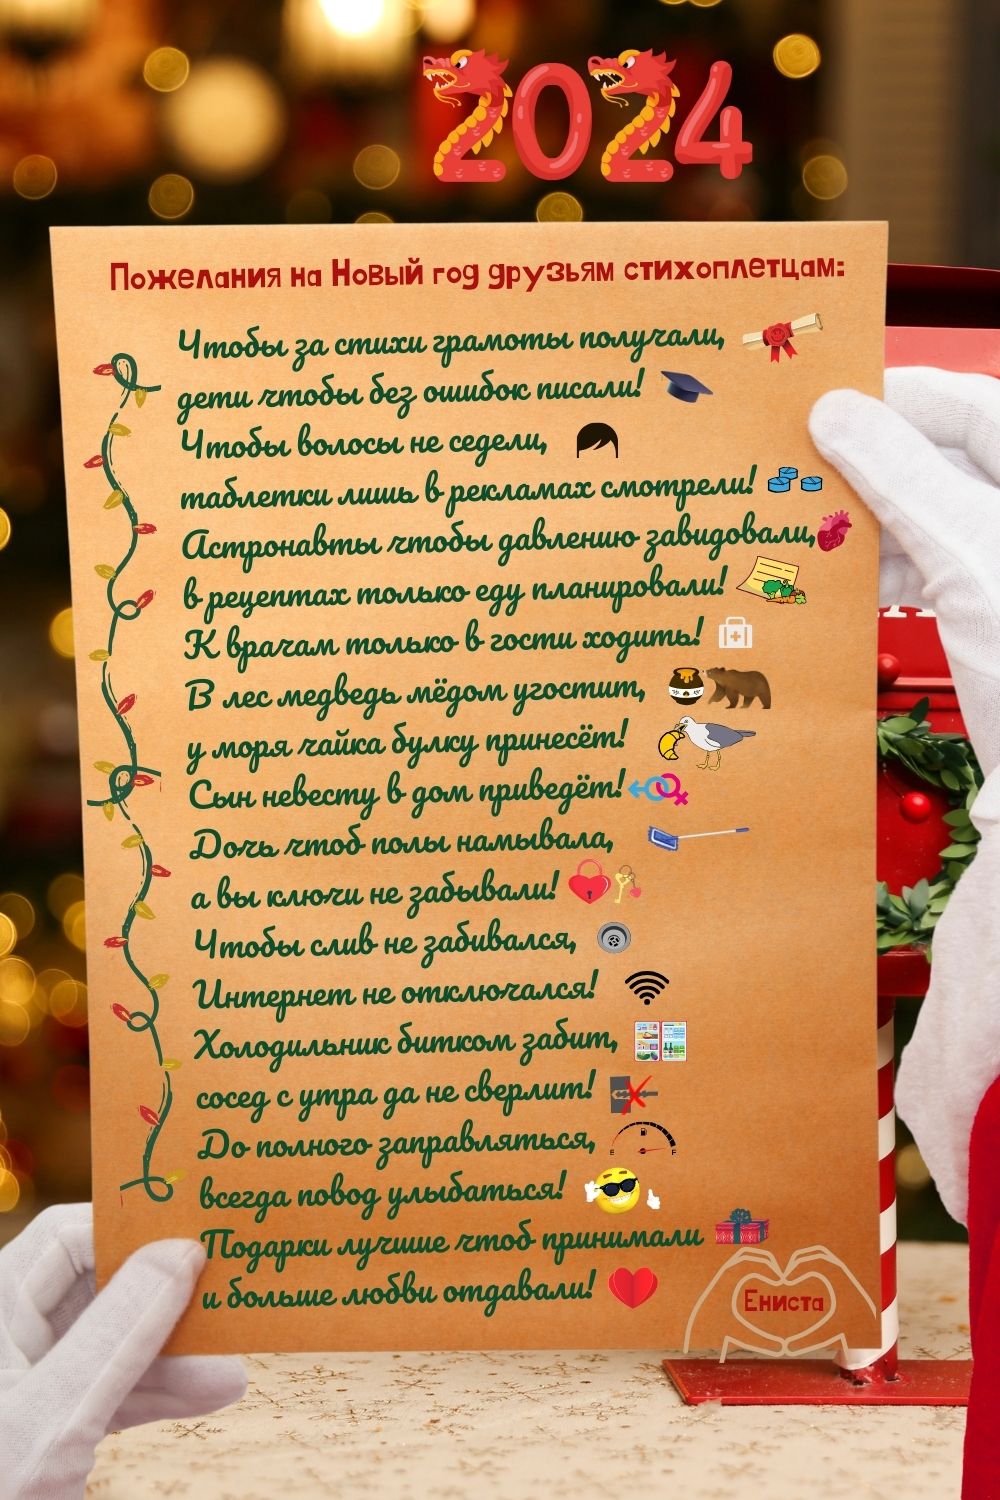 2024
Пожелания на Новый год друзьям стихоплетцам:
Чтобы за стихи грамоты получали,
дети чтобы без ошибок писали!
Чтобы волосы не седели,
таблетки лишь в рекламах смотрели!
Астронавты чтобы давлению завидовали,
в рецептах только еду планировали!
К врачам только в гости ходить!
В лес медведь мёдом угостит,
у моря чайка булку принесёт!
Сын невесту в дом приведёт!
Дочь чтоб полы намывала,
а вы ключи не забывали!
Чтобы слив не забивался,
Интернет не отключался!
Холодильник битком забит,
сосед с утра да не сверлит!
До полного заправляться,
E F
всегда повод улыбаться!
Подарки лучшие чтоб принимали
и больше любви отдавали!
Ениста